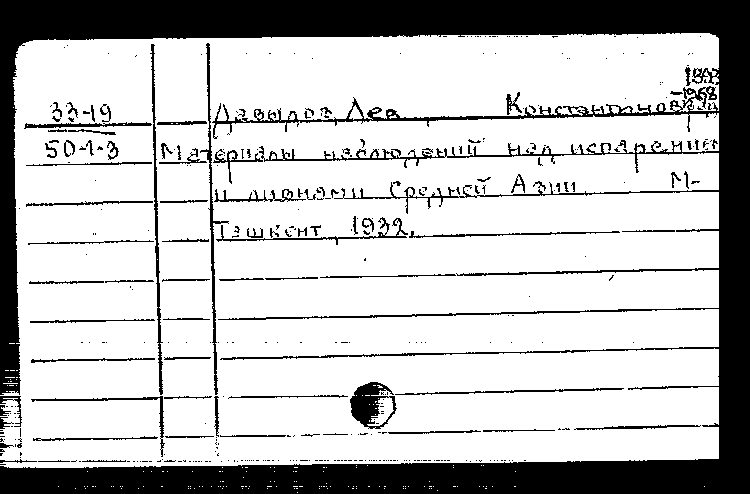 33-19 Давыдов, Лев Константинович
-1968
50-1-3 Материалы наблюдений над испарением
и ливнями Средней Азии М-
Ташкент, 1932.